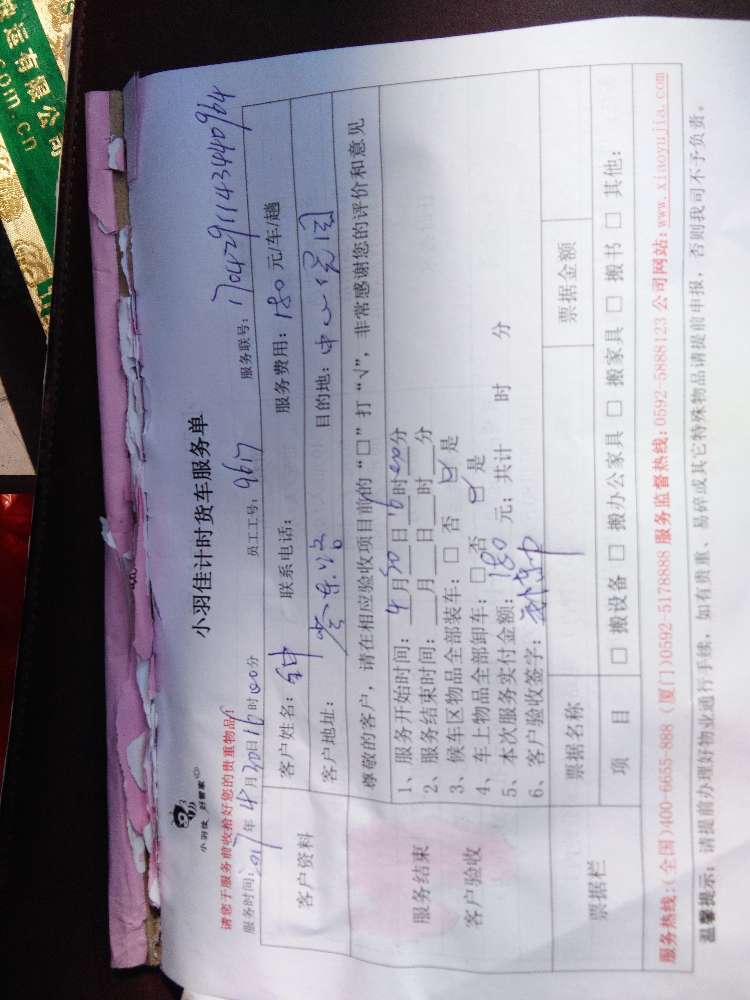 小羽佳 好管家
小羽佳计时货车服务单
请您于服务前收拾好您的贵重物品!
服务时间: 2017年4月30日16时00分 员工工号: 9617 服务联号: 170429114344096
客户资料
客户姓名: 钟 联系电话: 服务费用: 180元/车/趟
客户地址: 目的地: 中山公园
服务结束
客户验收
尊敬的客户, 请在相应验收项目前的“□”打“√”, 非常感谢您的评价和意见
1、服务开始时间: 4月30日16时00分
2、服务结束时间: 月 日 时 分
3、候车区物品全部装车: □ 否 ☑ 是
4、车上物品全部卸车: □ 否 ☑ 是
5、本次服务实付金额: 180 元; 共计 时 分
6、客户验收签字:
票据栏
票据名称 票据金额
项 目 □ 搬设备 □ 搬办公家具 □ 搬家具 □ 搬书 □ 其他:
服务热线:(全国)400-6655-888 (厦门)0592-5178888 服务监督热线:0592-5888123 公司网站:www.xiaoyujia.com
温馨提示: 请提前办理好物业通行手续, 如有贵重、易碎或其它特殊物品请提前申报, 否则我司不予负责。
运有限公司
om.cn